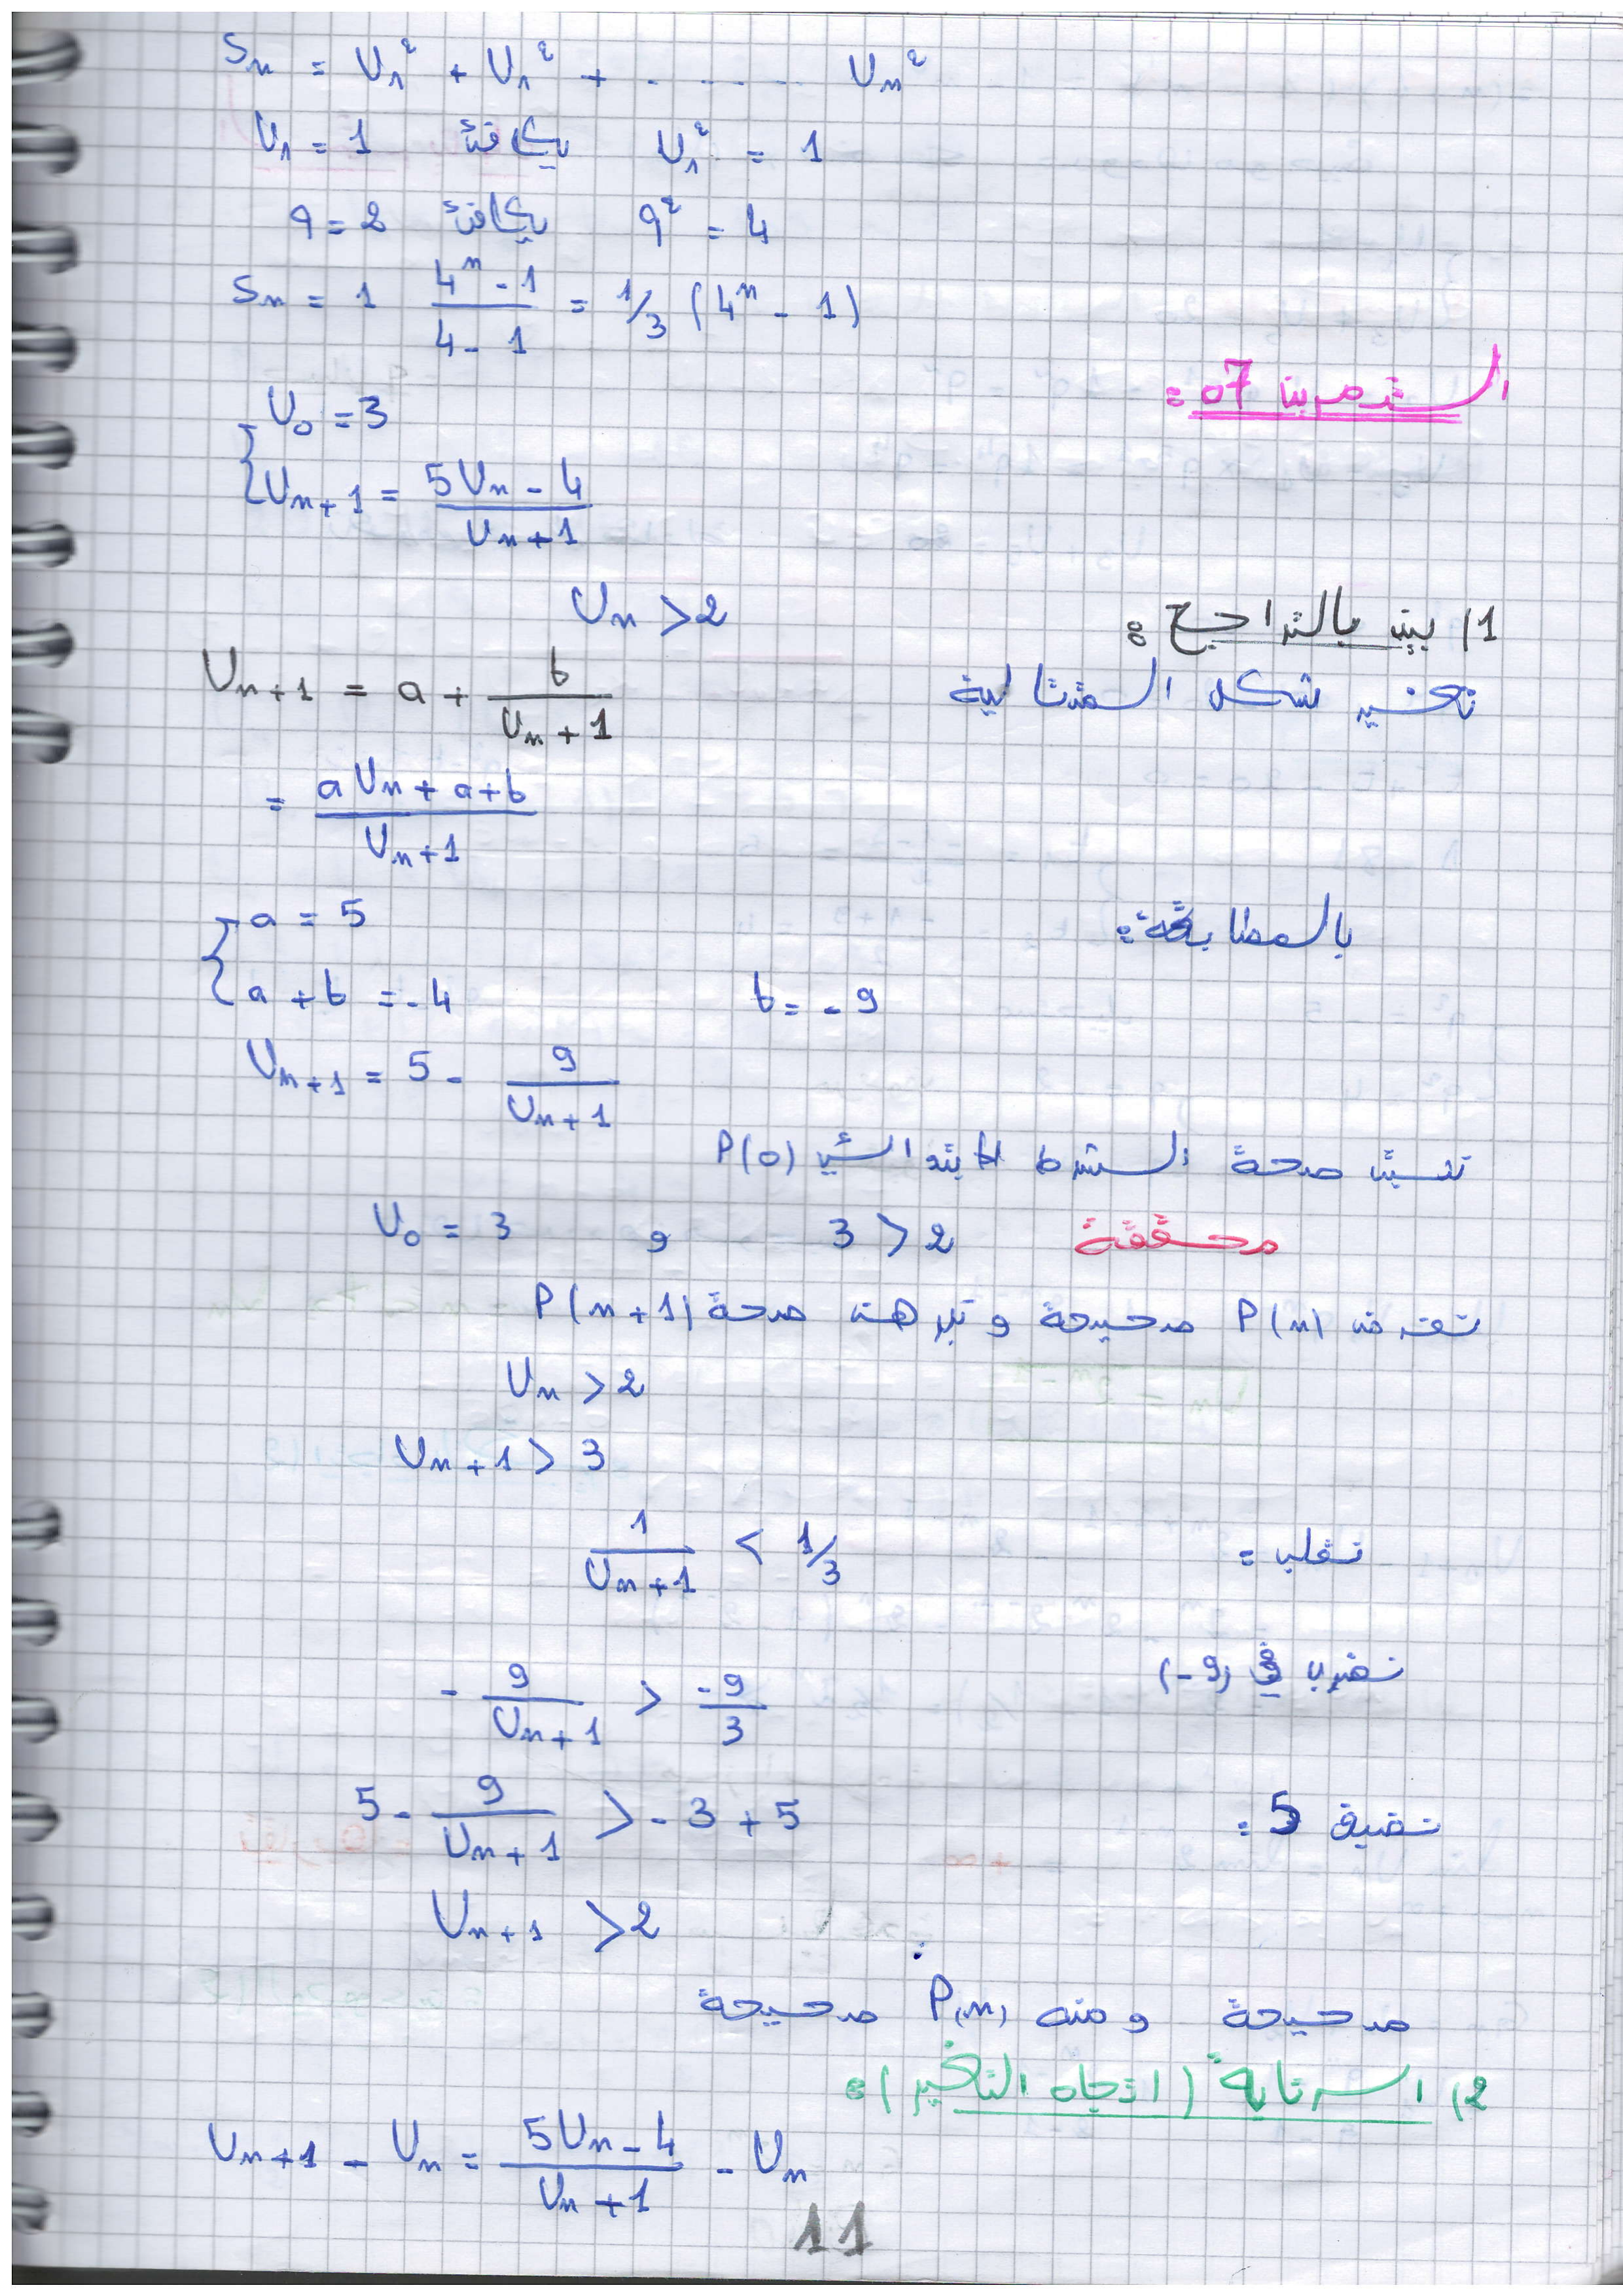 Sn = U₁² + U₁² + ....... Un²
U₁ = 1 يكافئ U₁² = 1
q = 2 يكافئ q² = 4
Sn = 1 (4ⁿ - 1)/(4 - 1) = 1/3 (4ⁿ - 1)
التمرين 07 :
U₀ = 3
Un+1 = (5Un - 4)/(Un + 1)
1/ بين بالتراجع : Un > 2
تغيير شكل المتتالية Un+1 = a + b/(Un + 1)
= (aUn + a + b)/(Un + 1)
بالمطابقة :
a = 5
a + b = -4 b = -9
Un+1 = 5 - 9/(Un + 1)
صحة الشرط الابتدائي P(0)
U₀ = 3 و 3 > 2 محققة
نفرض P(n) صحيحة و نبرهن صحة P(n+1)
Un > 2
Un + 1 > 3
نقلب : 1/(Un + 1) < 1/3
نضرب في (-9)
- 9/(Un + 1) > -9/3
نضيف 5 : 5 - 9/(Un + 1) > -3 + 5
Un+1 > 2
صحيحة و منه P(n) صحيحة
2/ الرتابة (اتجاه التغير) :
Un+1 - Un = (5Un - 4)/(Un + 1) - Un
11